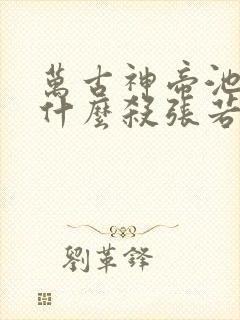 萬古神帝池
什麼殺張若
劉革鋒